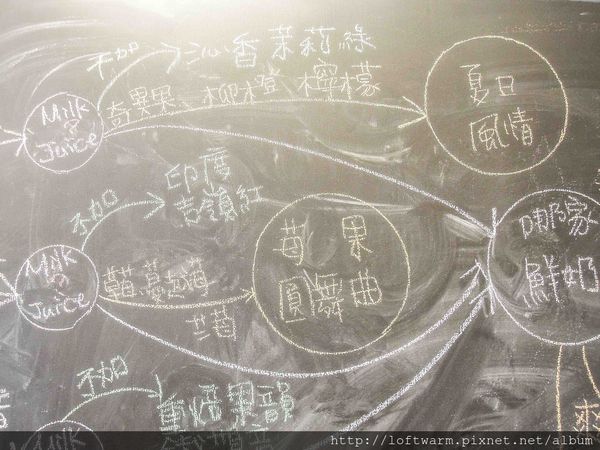 不加
沁香茉莉綠
奇異果、柳橙、檸檬
Milk
の
Juice
夏日
風情
不加
印度
吉嶺紅
Milk
の
Juice
草莓、蔓越莓
莓果
圓舞曲
家
鮮奶
不加
重焙果韻
Milk
http://loftwarm.pixnet.net/album